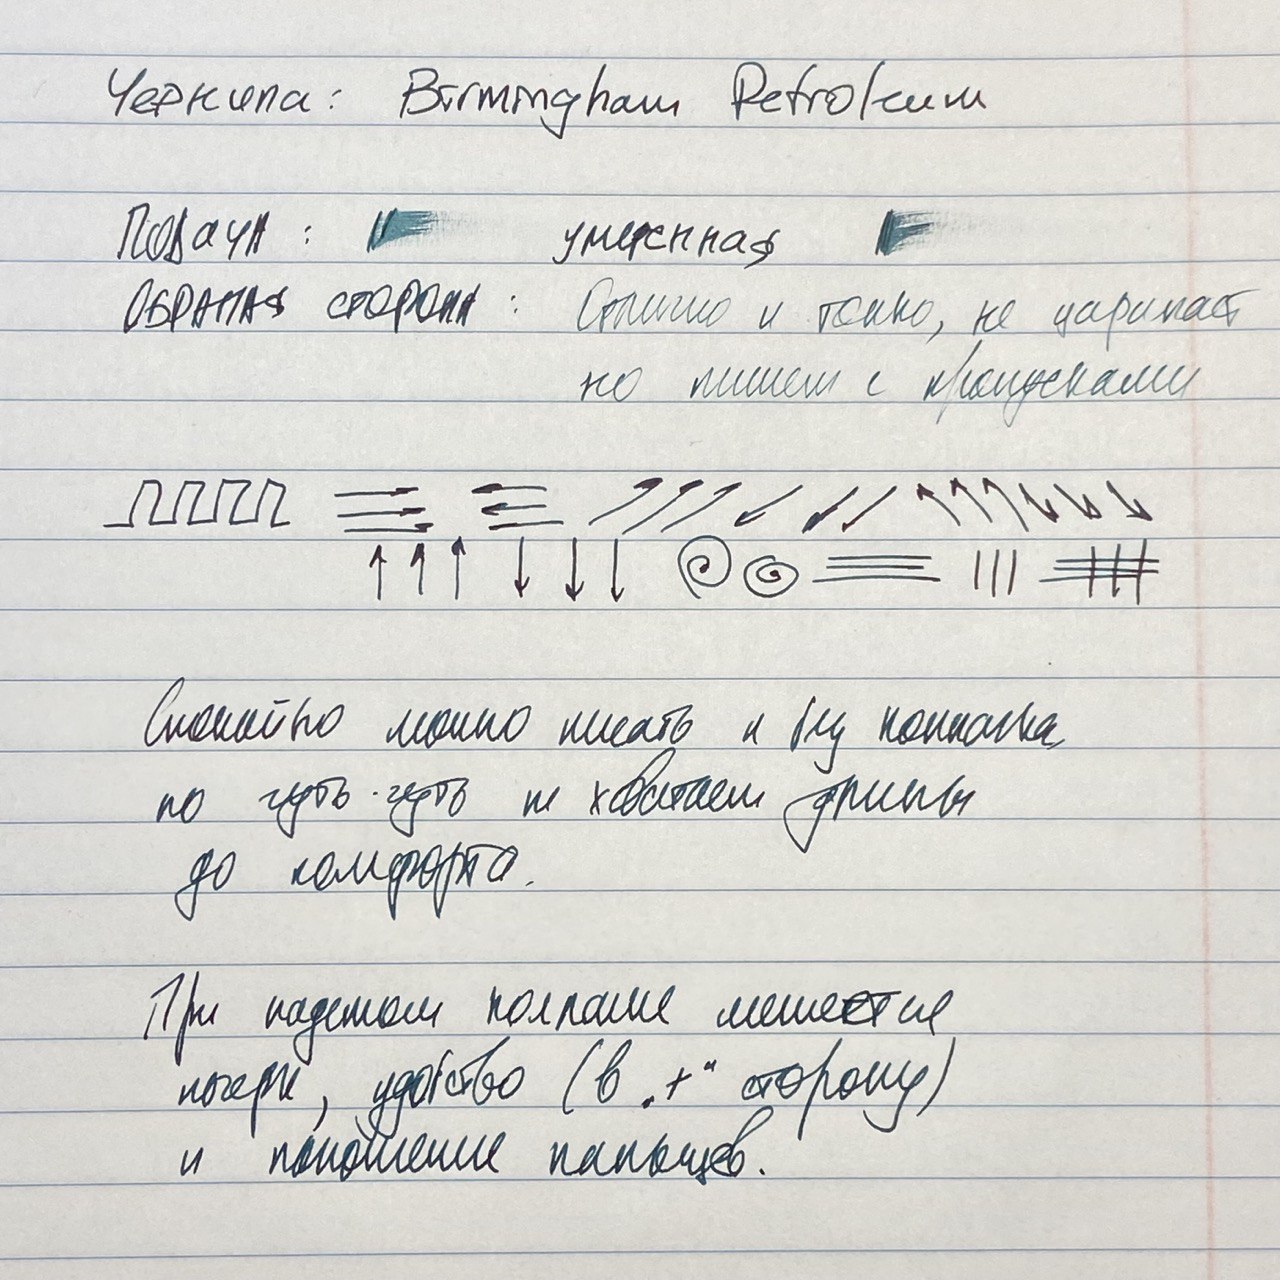 Чернила: Birmingham Petroleum
Подача: умеренная
Обратная сторона: Отлично и тонко, не царапает
но пишет с пропусками
Спокойно можно писать и без колпачка,
но чуть-чуть не хватает длины
до комфорта.
При надетом колпаке меняется
почерк, удобство (в „+“ сторону)
и положение пальцев.